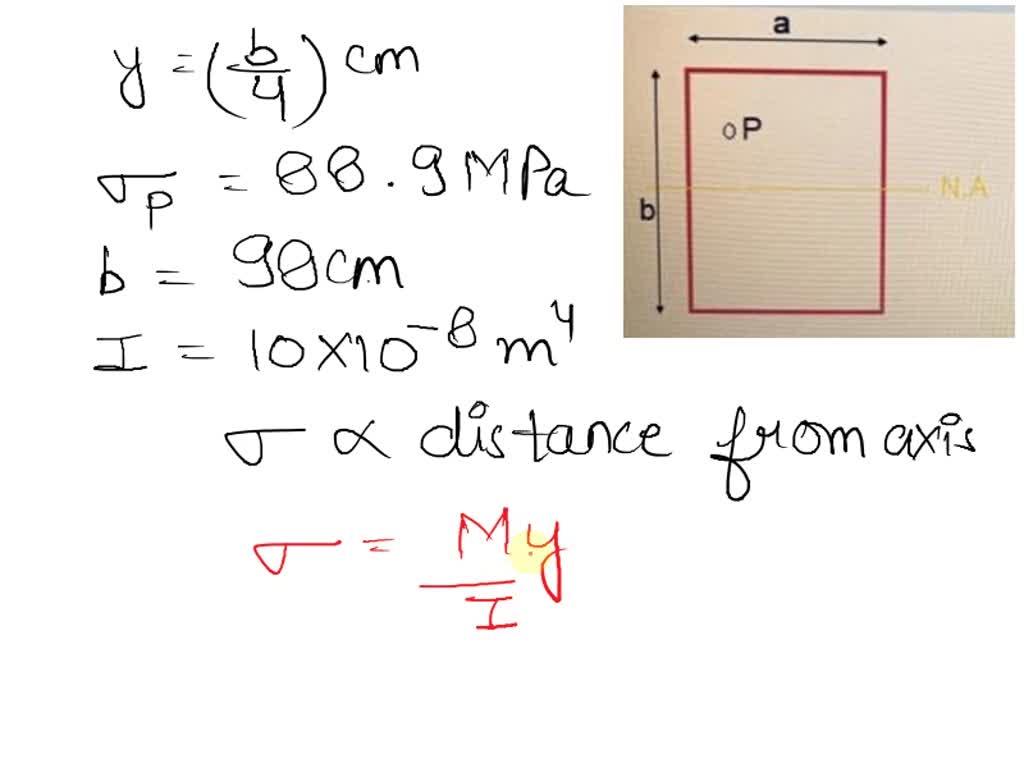 y = (b/4) cm
σP = 88.9 MPa
b = 98cm
I = 10×10⁻⁸ m⁴
σ ∝ distance from axis
σ = My/I
a
P
N.A
b